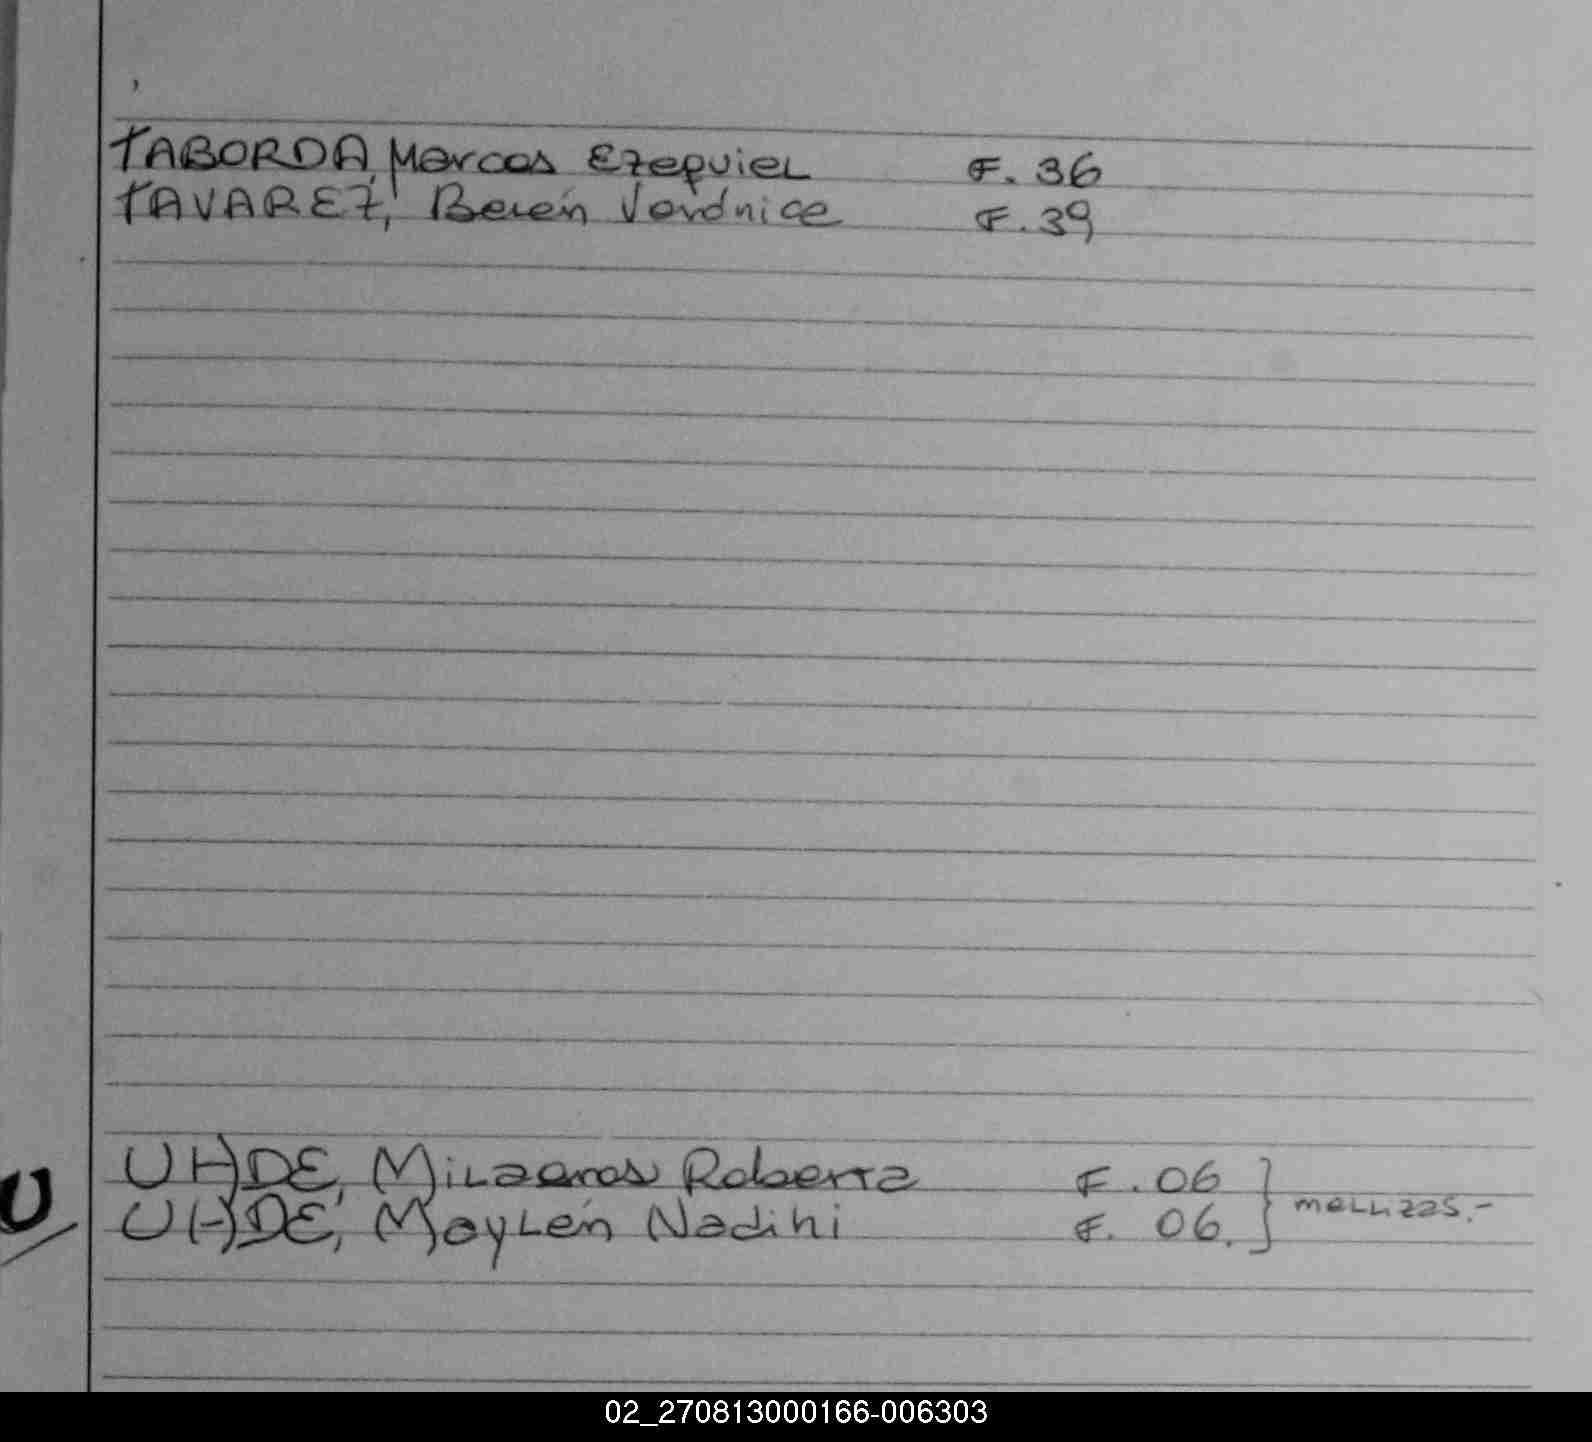 TABORDA, Marcos Ezequiel F. 36
TAVAREZ, Belén Verónica F. 39
U
UHDE, Milagros Roberta F. 06
UHDE, Maylén Nadihi F. 06.
mellizas.-
02_270813000166-006303